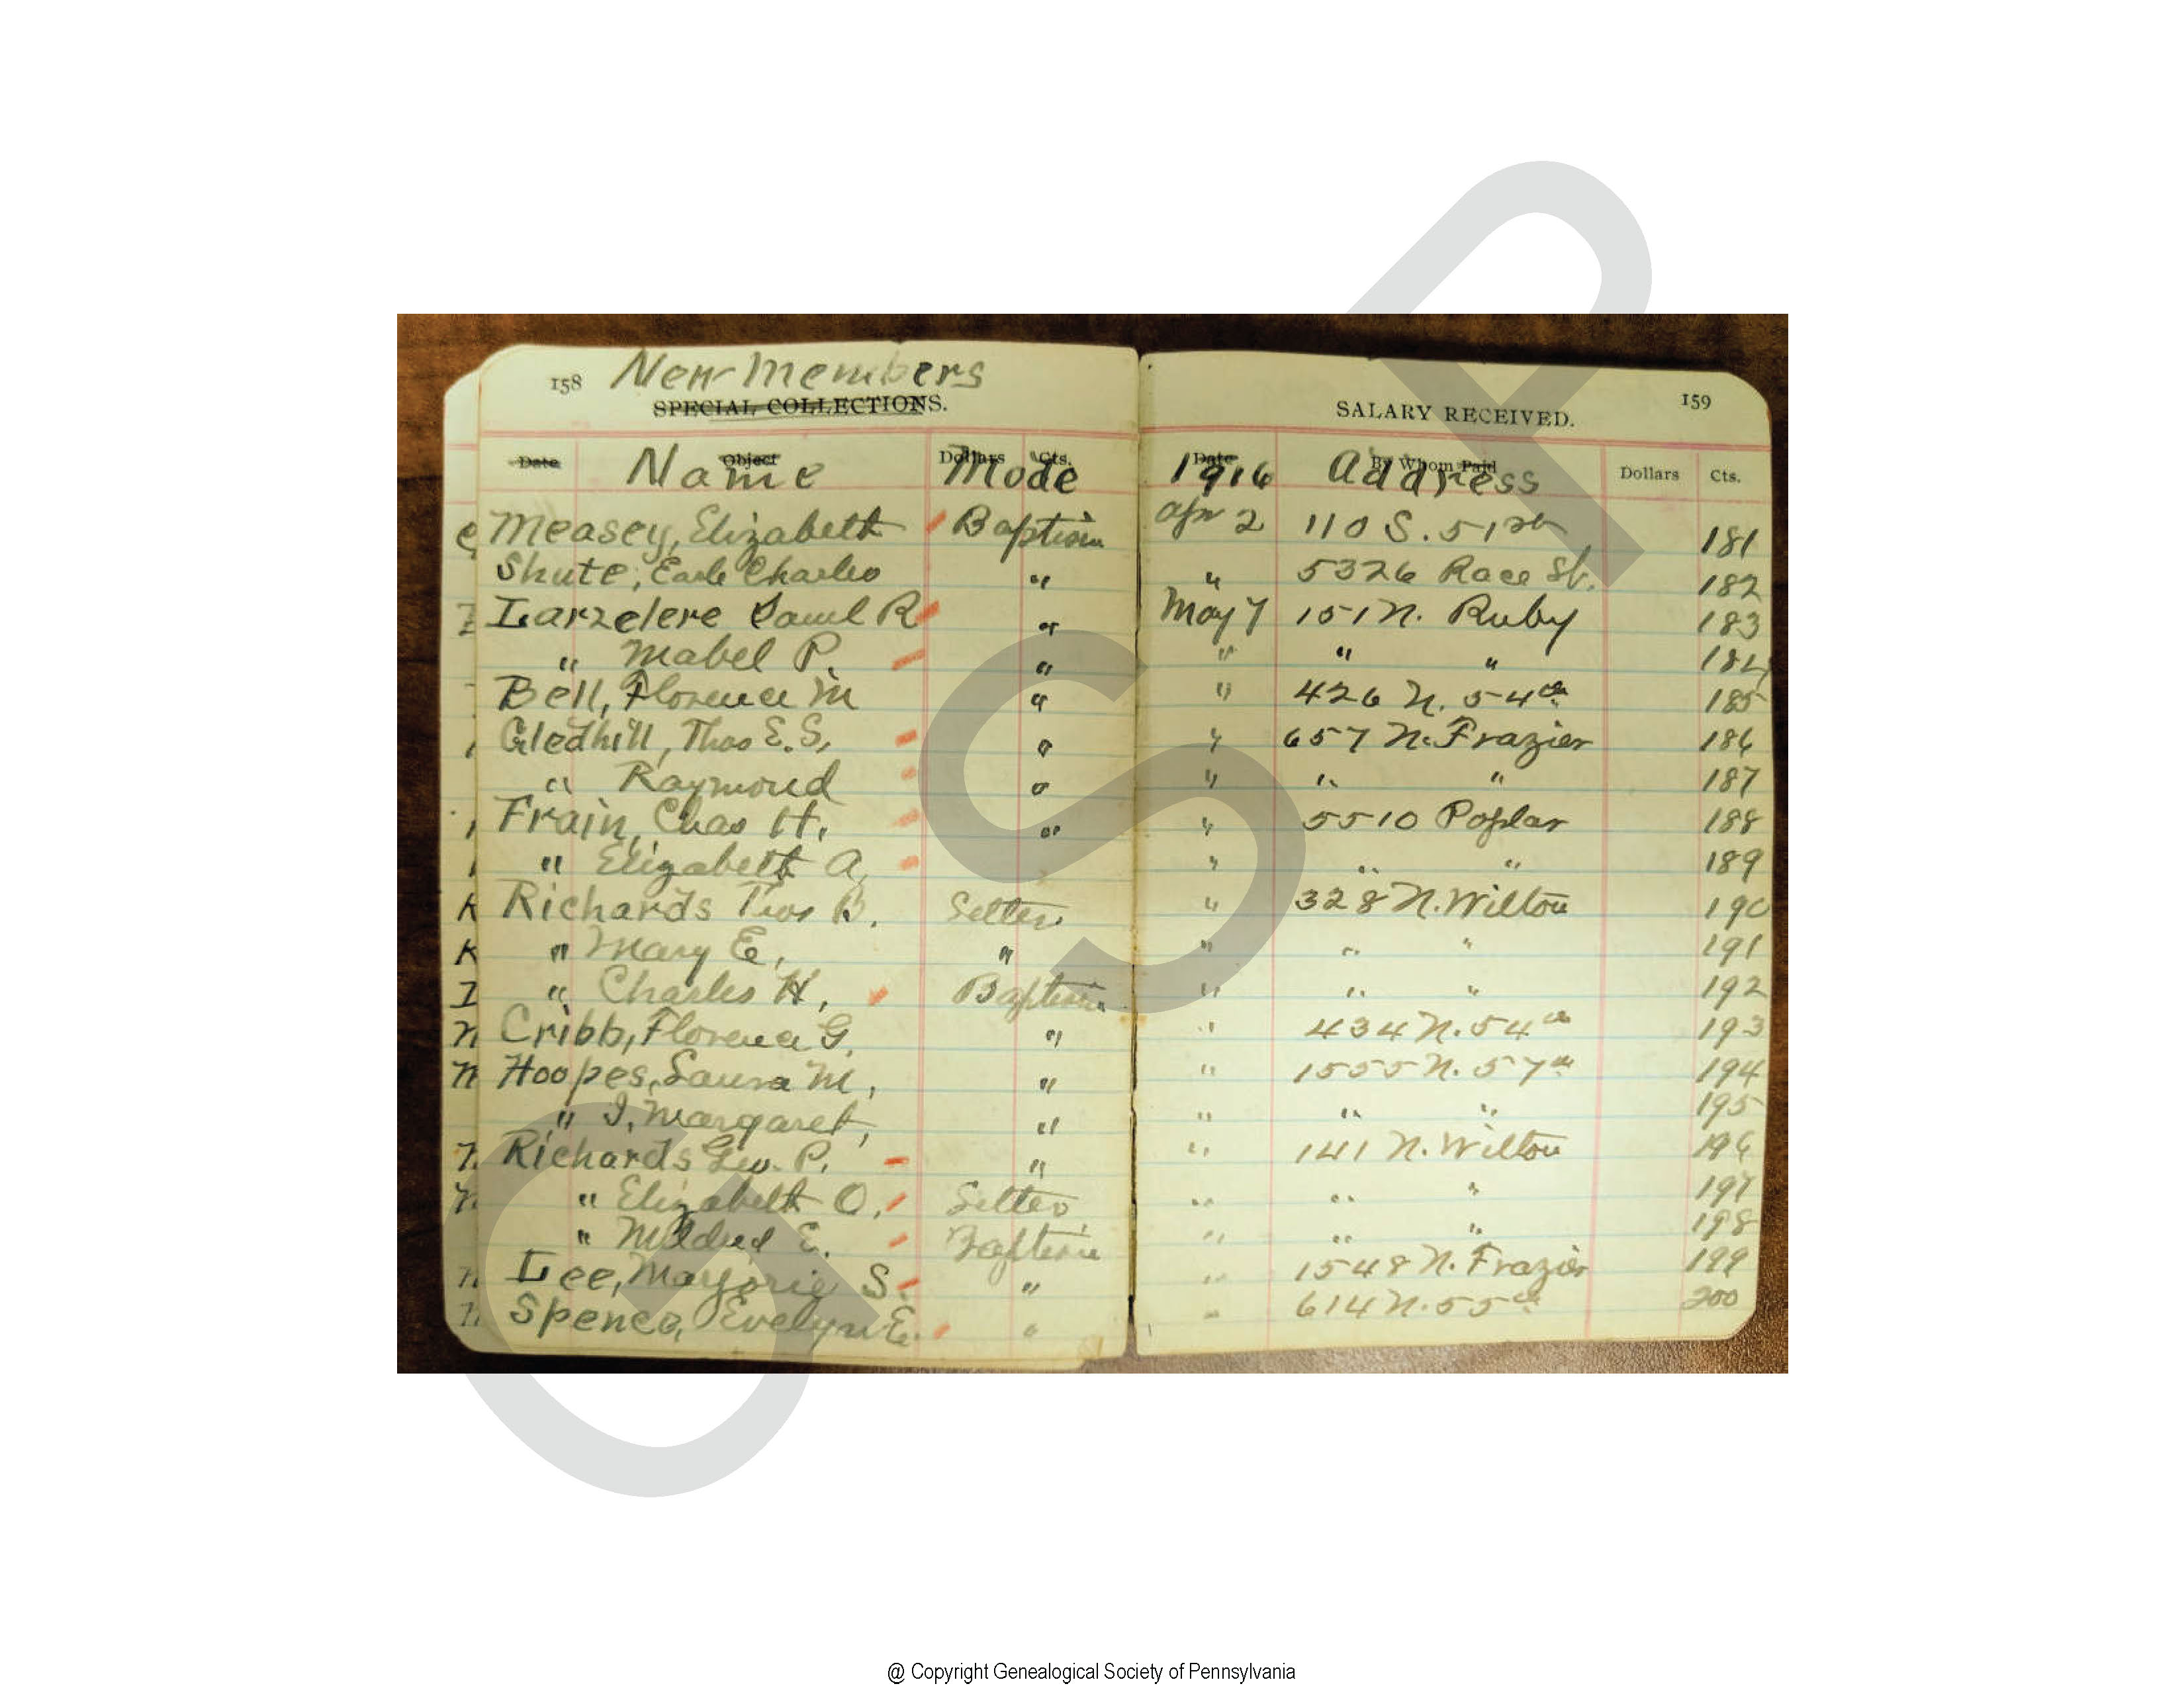 158 New Members
SPECIAL COLLECTIONS.
Date Object Dollars Cts.
Name Mode
Measey, Elizabeth Baptism
Shute, Earle Charles "
Larzelere Saml R "
" Mabel P. "
Bell, Florence M "
Gledhill, Thos E. S, "
" Raymond "
Frain, Chas H. "
" Elizabeth A,
Richards Thos B. Letter
" Mary E, "
" Charles H, Baptism
Cribb, Florence G. "
Hoopes, Laura M, "
" I, Margaret, "
Richards Geo. P. "
" Elizabeth O, Letter
" Mildred E. Baptism
Lee, Marjorie S. "
Spence, Evelyn E. "
159
SALARY RECEIVED.
Date By Whom Paid Dollars Cts.
1916 Address
Apr 2 110 S. 51st 181
" 5326 Race St. 182
May 7 151 N. Ruby 183
" " " 184
" 426 N. 54th 185
" 657 N. Frazier 186
" " " 187
" 5510 Poplar 188
" " " 189
" 328 N. Wilton 190
" " " 191
" " " 192
" 434 N. 54th 193
" 1555 N. 57th 194
" " " 195
" 141 N. Wilton 196
" " " 197
" " " 198
" 1548 N. Frazier 199
" 614 N. 55th 200
GSP
@ Copyright Genealogical Society of Pennsylvania